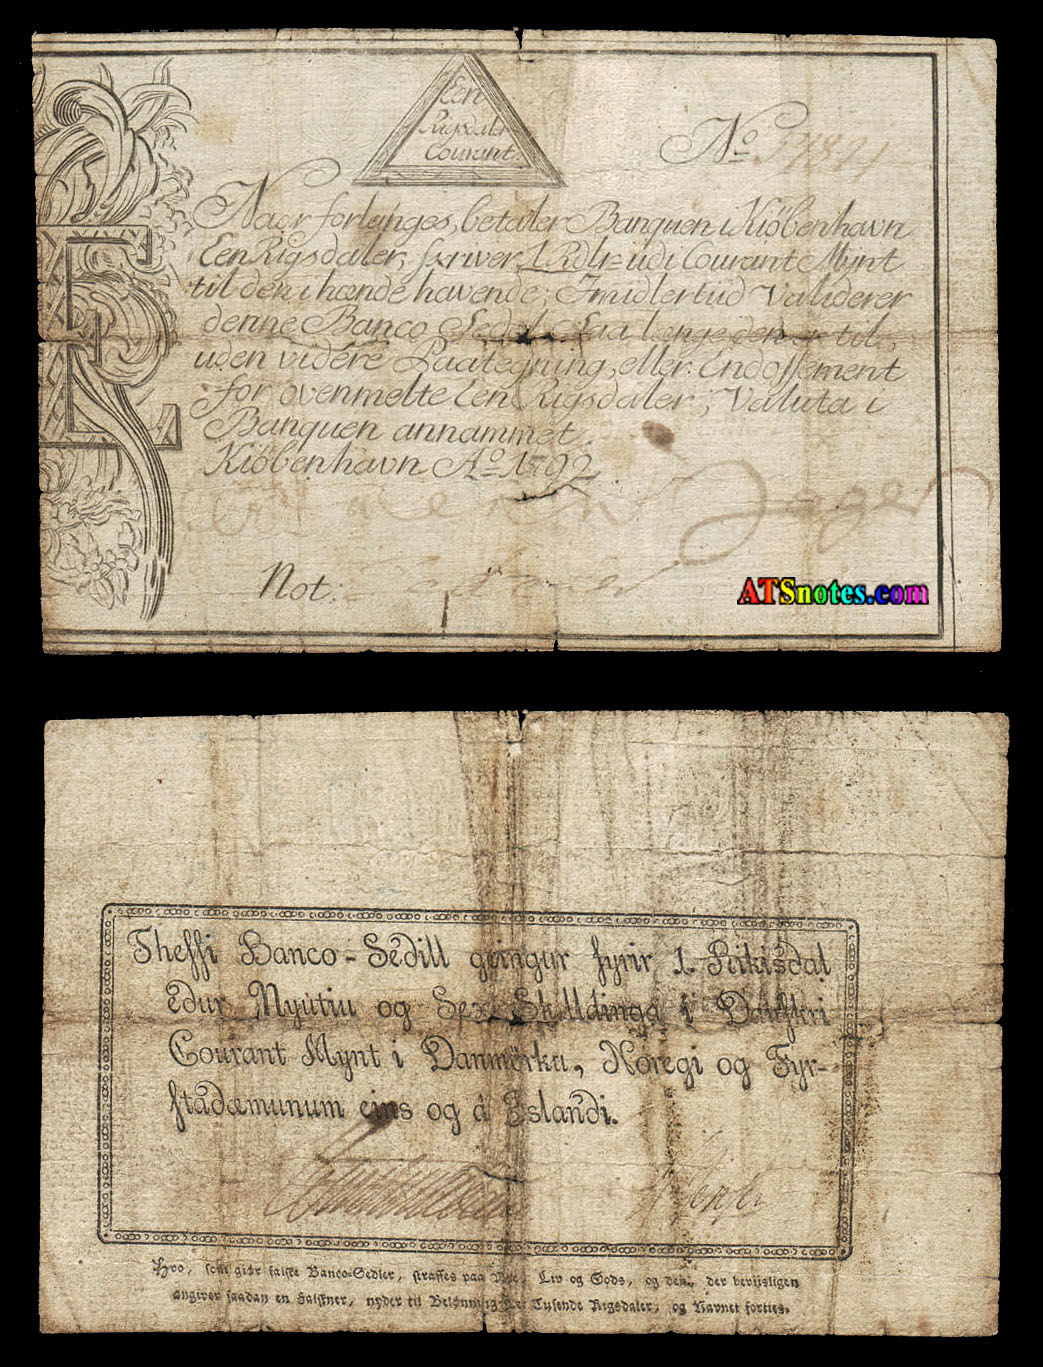 Een
Rigsdaler
Courant.
No 
Naar forlanges, betaler Banquen i Kiöbenhavn
Een Rigsdaler, skriver 1 Rdlr udi Courant Mynt
til den i hænde havende; Imidlertiid Validerer
denne Banco Sedel saa længe den er til,
uden vidére Paategning, eller Endossement
for ovenmelte Een Rigsdaler, Valuta i
Banquen annammet.
Kiöbenhavn Ao 1792
Not:
ATSnotes.com
Thessi Banco-Sedill geingur fyrir 1. Rikisdal
edur Nyutiu og Sex Skilldinga i Danskri
Courant Mynt i Danmörku, Noregi og Fyr-
stadæmunum eins og á Islandi.
Hvo, som giör falske Banco-Sedler, straffes paa Liv og Gods, og den, der beviisligen
angiver saadan en Falskner, nyder til Belönning Tusende Rigsdaler, og Navnet forties.